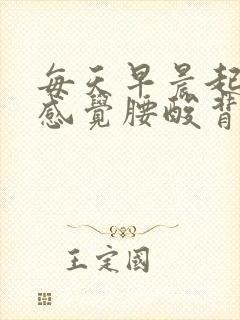 每天早晨起
感覺腰酸背
王定國